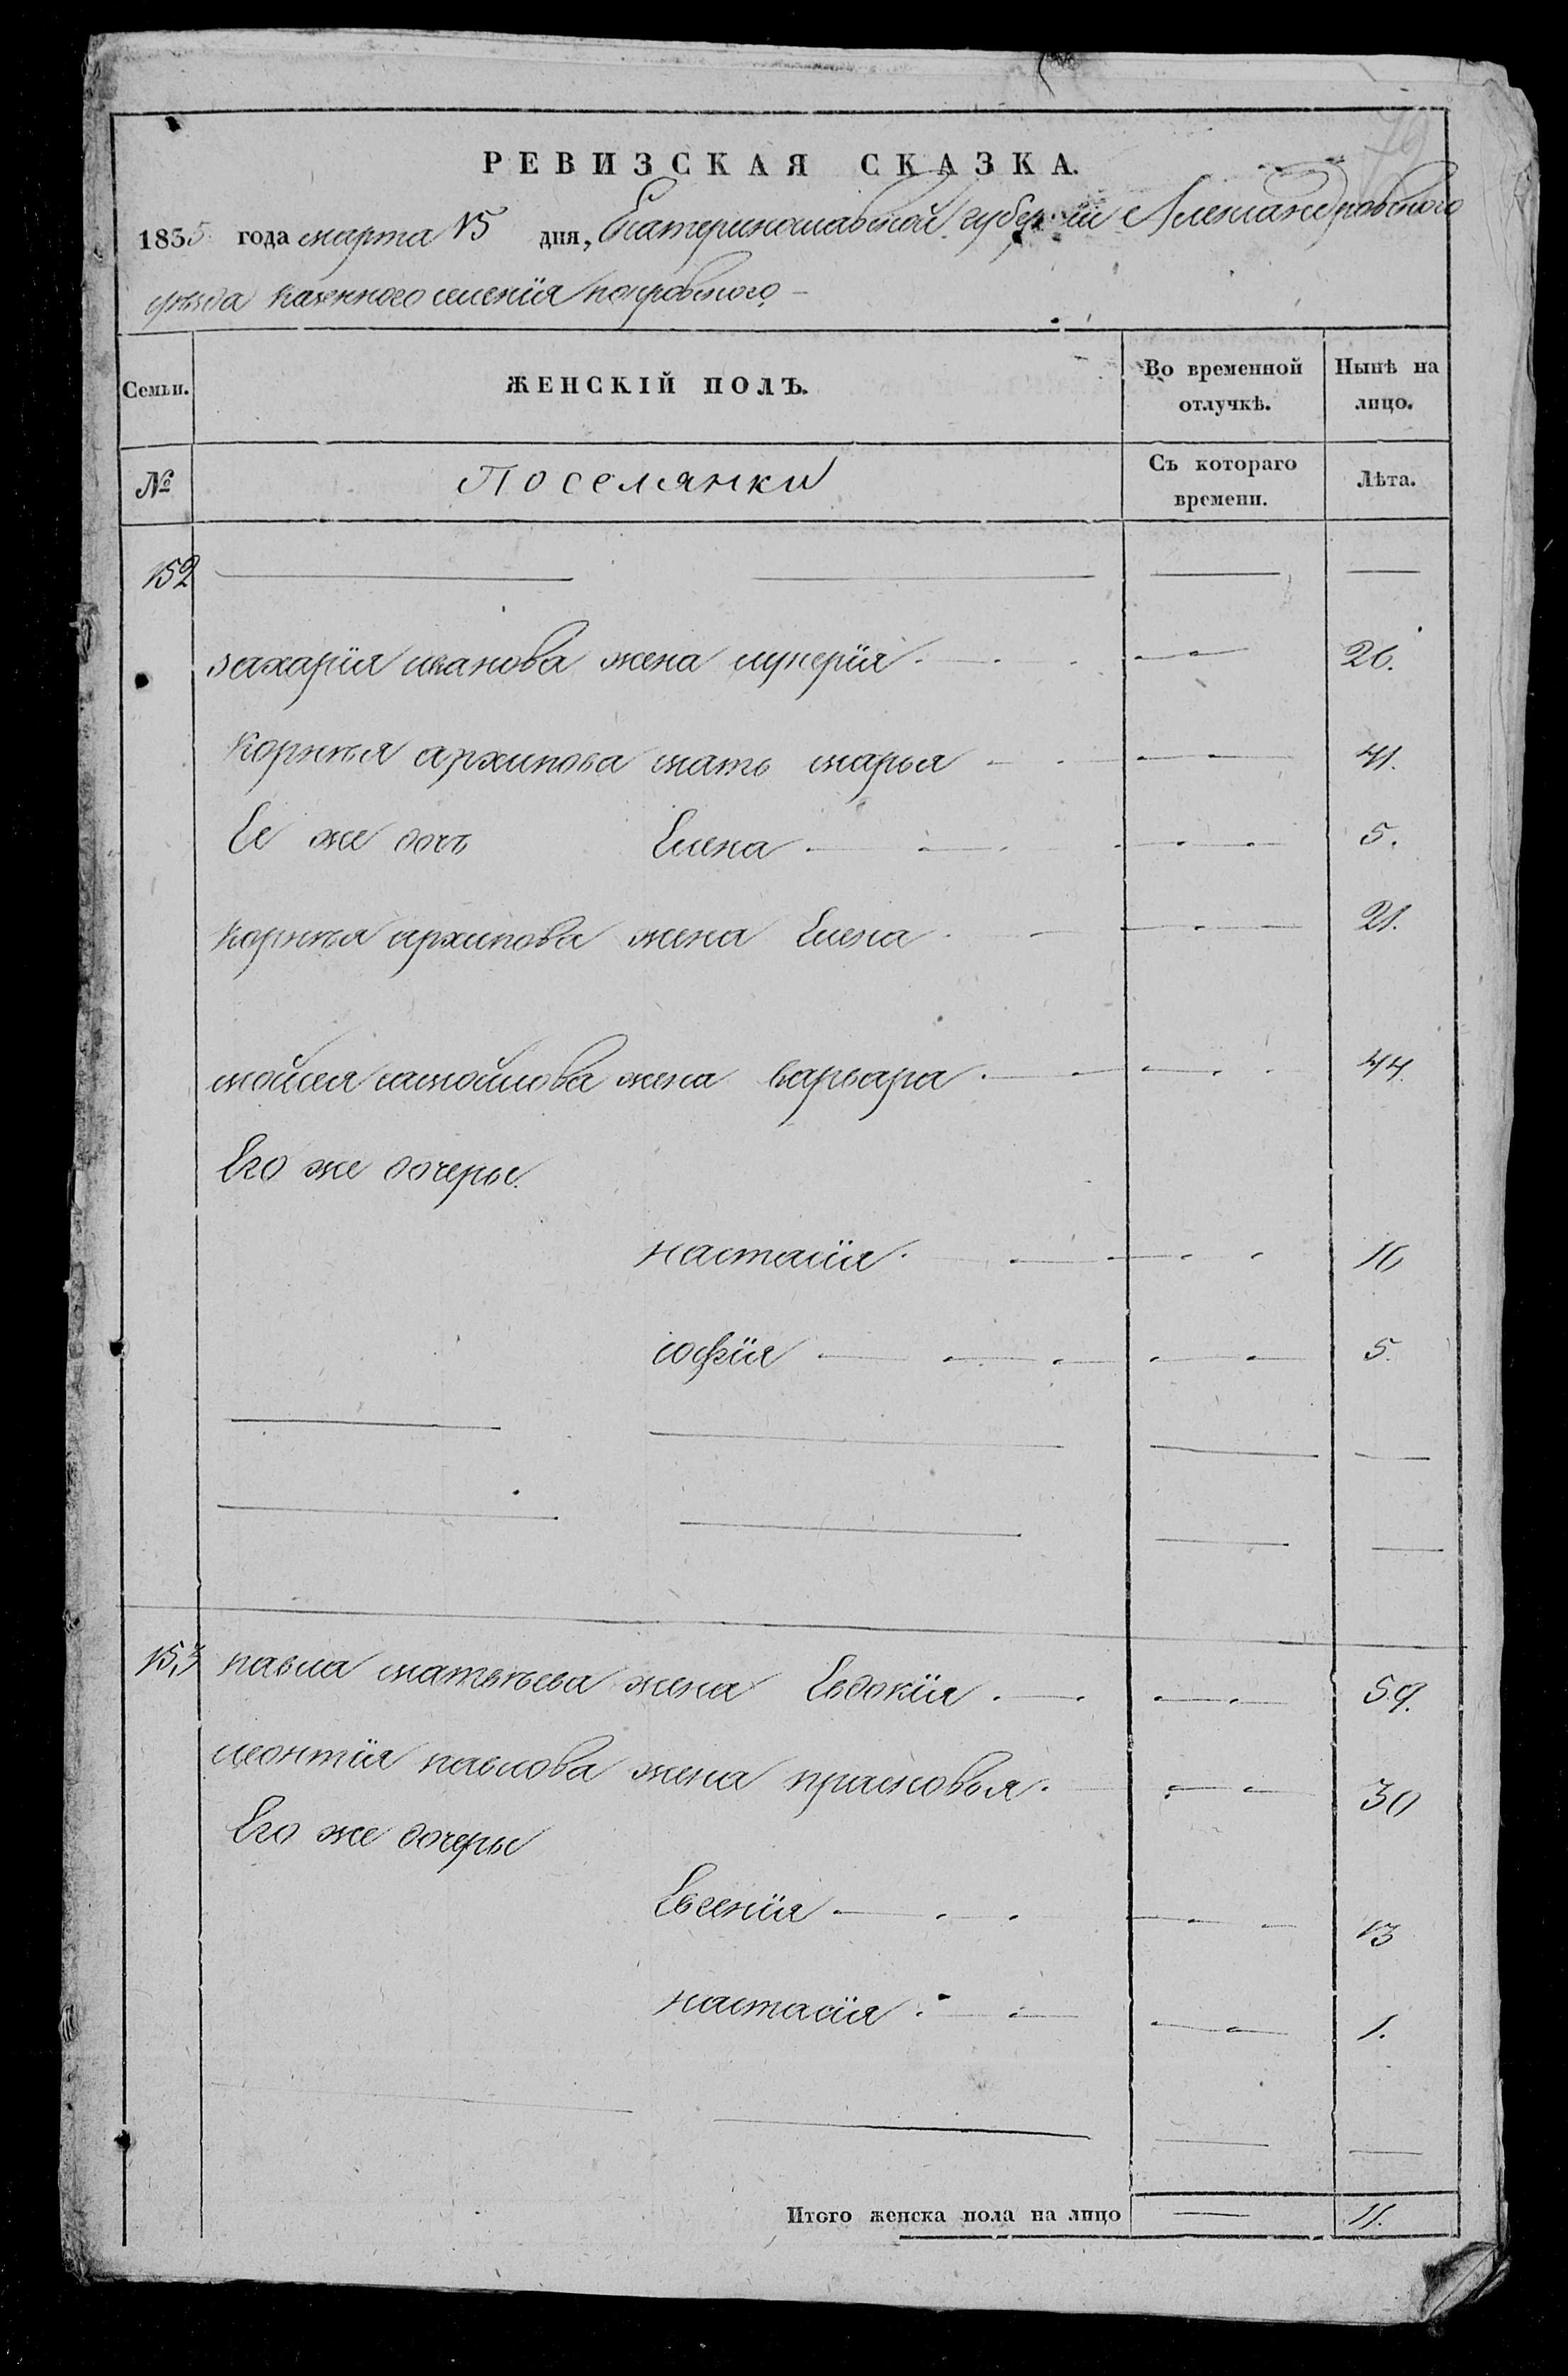 РЕВИЗСКАЯ СКАЗКА.
1855 года марта 15 дня, Екатеринославской губернїи Александровского
уѣзда казенного селенїя покровского
Семьи. ЖЕНСКІЙ ПОЛЪ. Во временной отлучкѣ. Нынѣ на лицо.
№ Поселянки Съ котораго времени. Лѣта.
152
захарїя иванова жена лукерїя 26.
Корнѣя архипова мать марья 41.
Ее же дочь Елена 5.
корнѣя архипова жена Елена 21.
мойсея самойлова жена варвара 44.
Его же дочеры
настасїя 16
софїя 5.
153 павла матвѣева жена Евдокїя 59.
леонтїя павлова жена прасковья 30
Его же дочеры
Евгенїя 13
настасїя 1.
Итого женска пола на лицо 11.